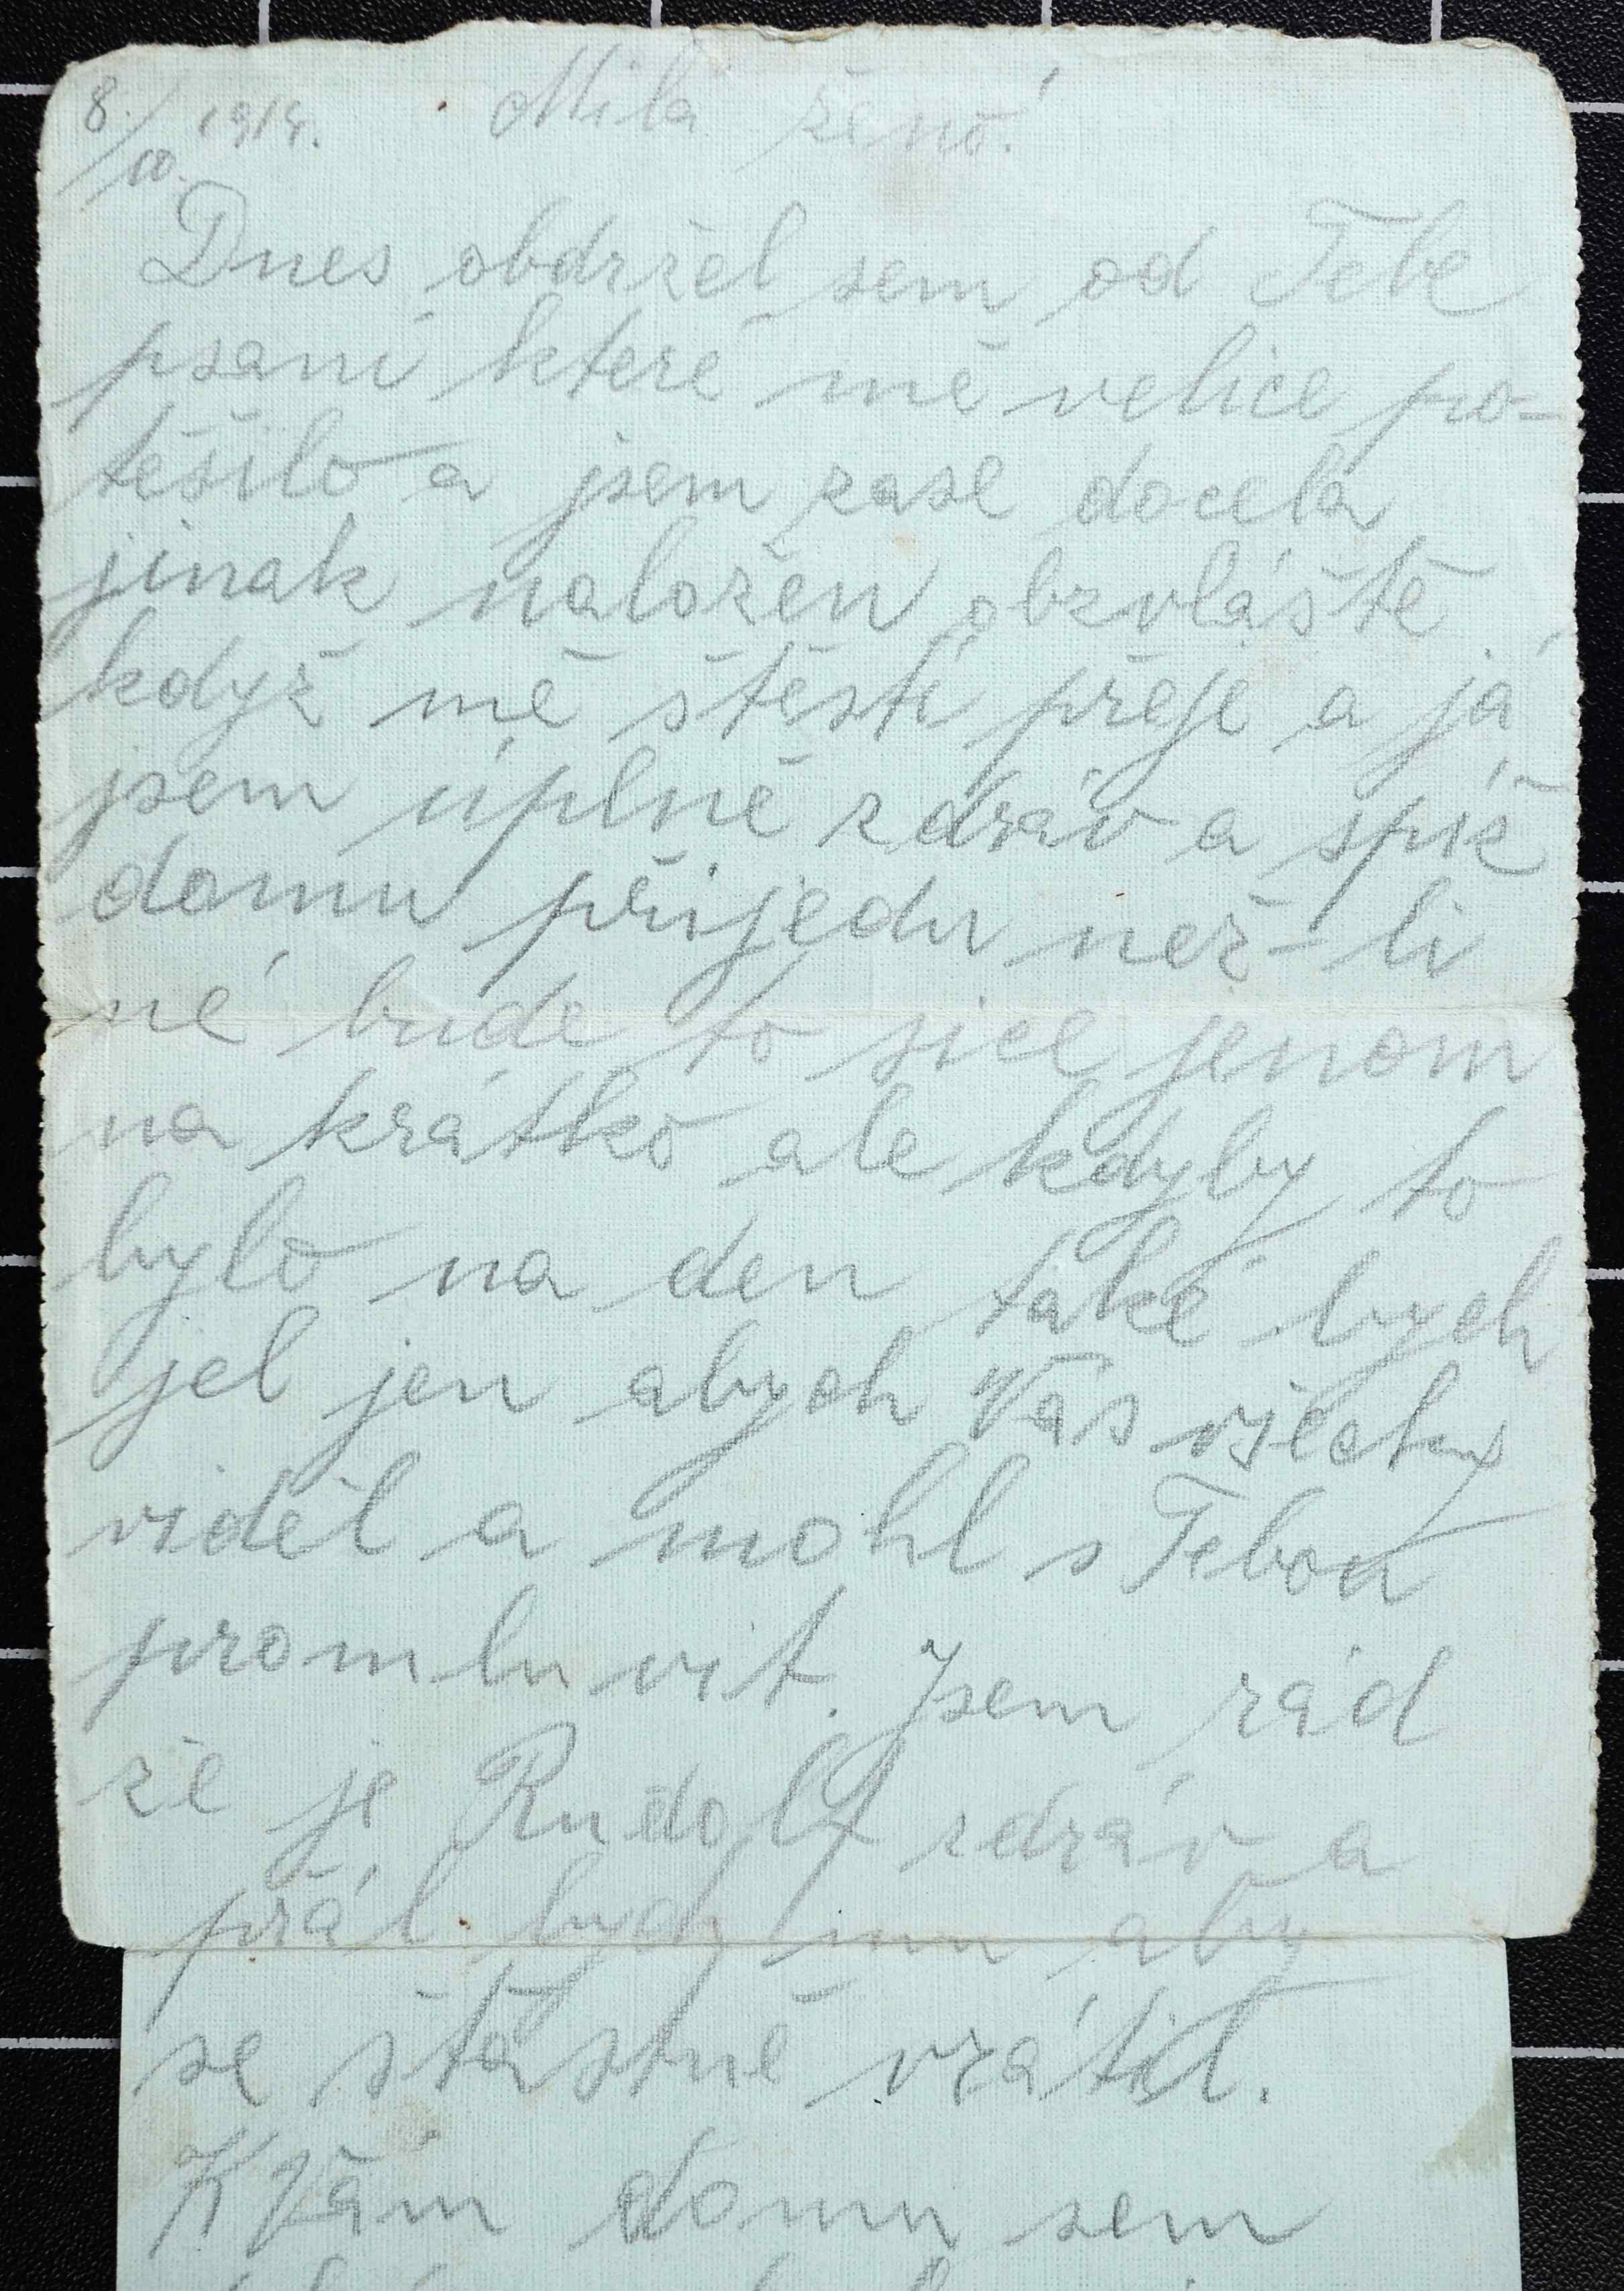 8./10. 1914. Milá ženo!
Dnes obdržel sem od Tebe
psaní které mě velice po-
těšilo a jsem zase docela
jinak naložen obzvláště
když mě štěstí přeje a já
jsem úplně zdráv a spíš
domu přijedu než-li
né bude to sice jenom
na krátko ale kdyby to
bylo na den také bych
jel jen abych Vás všecky
viděl a mohl s Tebou
promluvit. Jsem rád
že je Rudolf zdráv a
přál bych mu aby
se šťastně vrátil.
K Vám domu sem